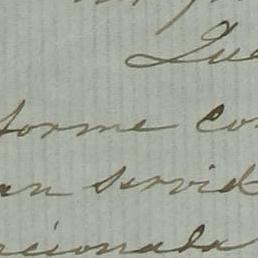 Que
forme con
an servid
cionada